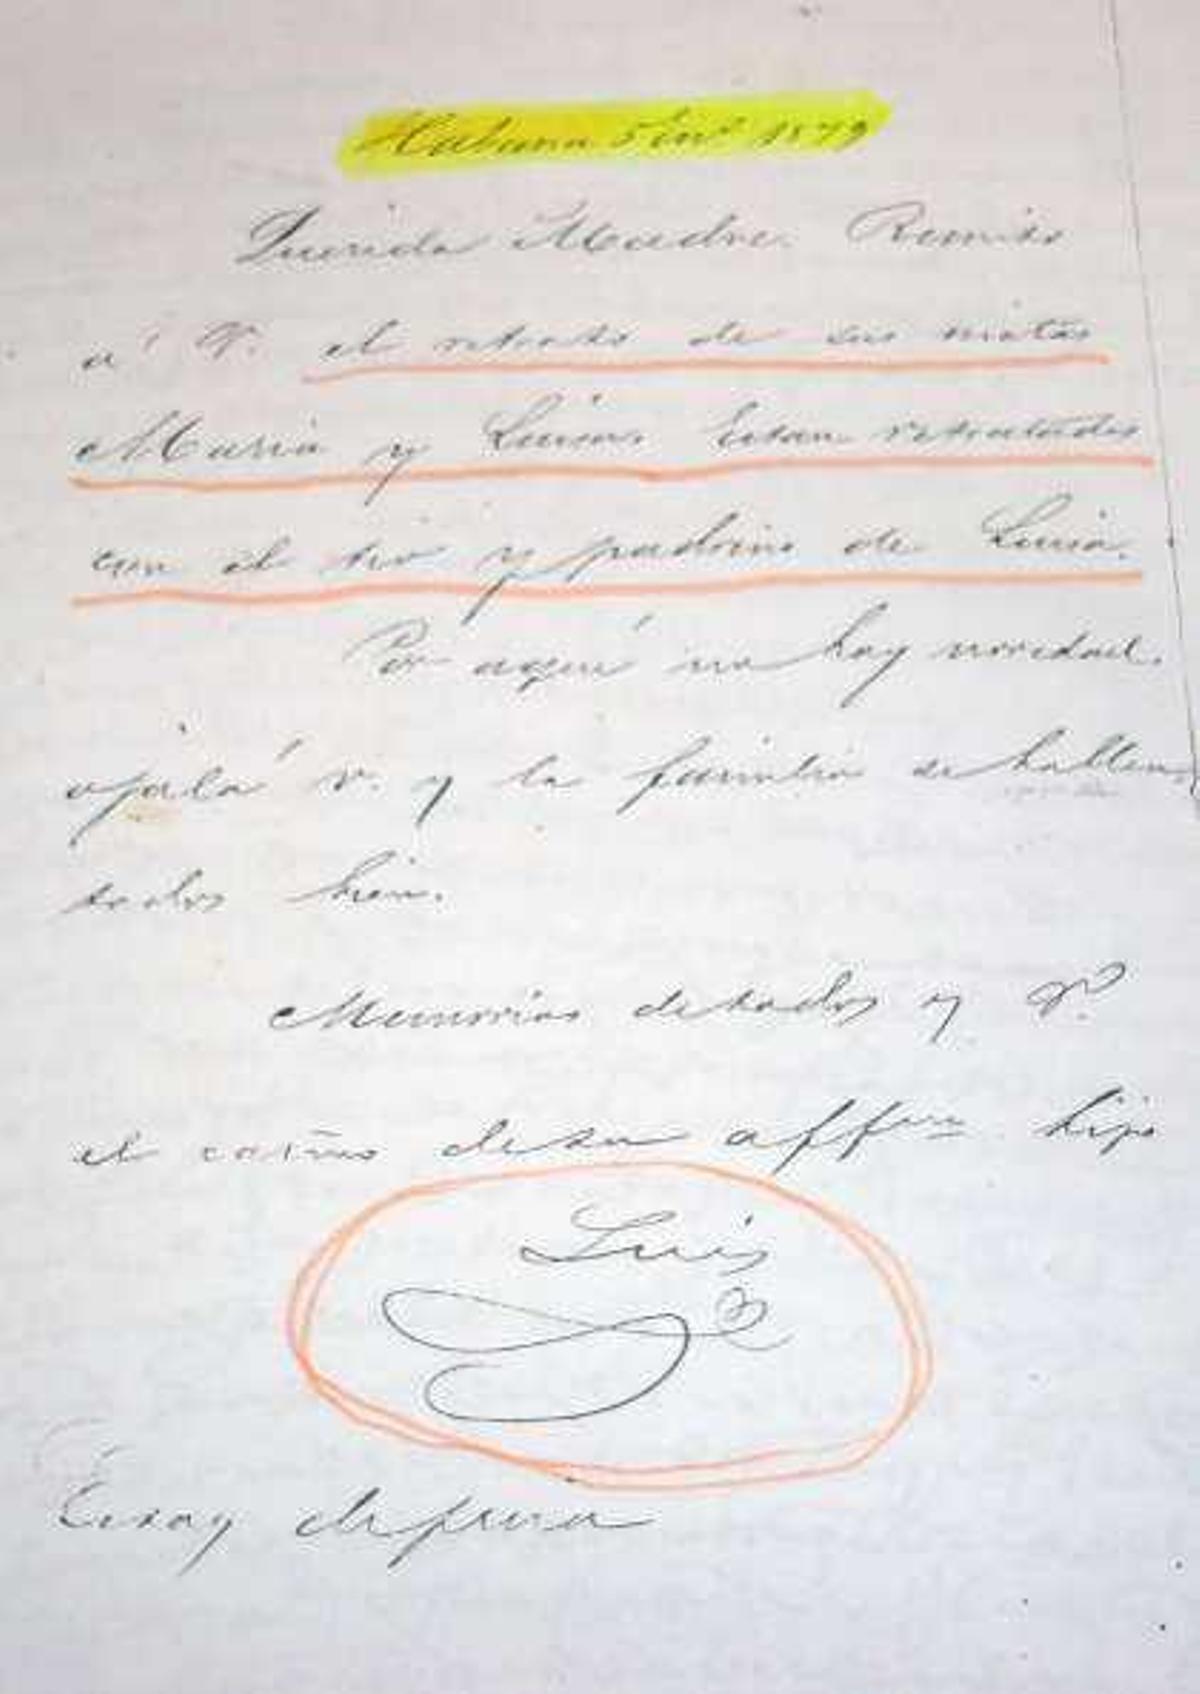 Habana 5 en.º 1879
Querida Madre. Remito
a' V. el retrato de sus nietas
Maria y Luisa. Estan retratadas
con el tio y padrino de Luisa.
Por aquí no hay novedad.
ojalá V. y la familia se hallen
todos bien.
Memorias de todos y V.
el cariño de su affmo hijo
Luis
Estoy de prisa